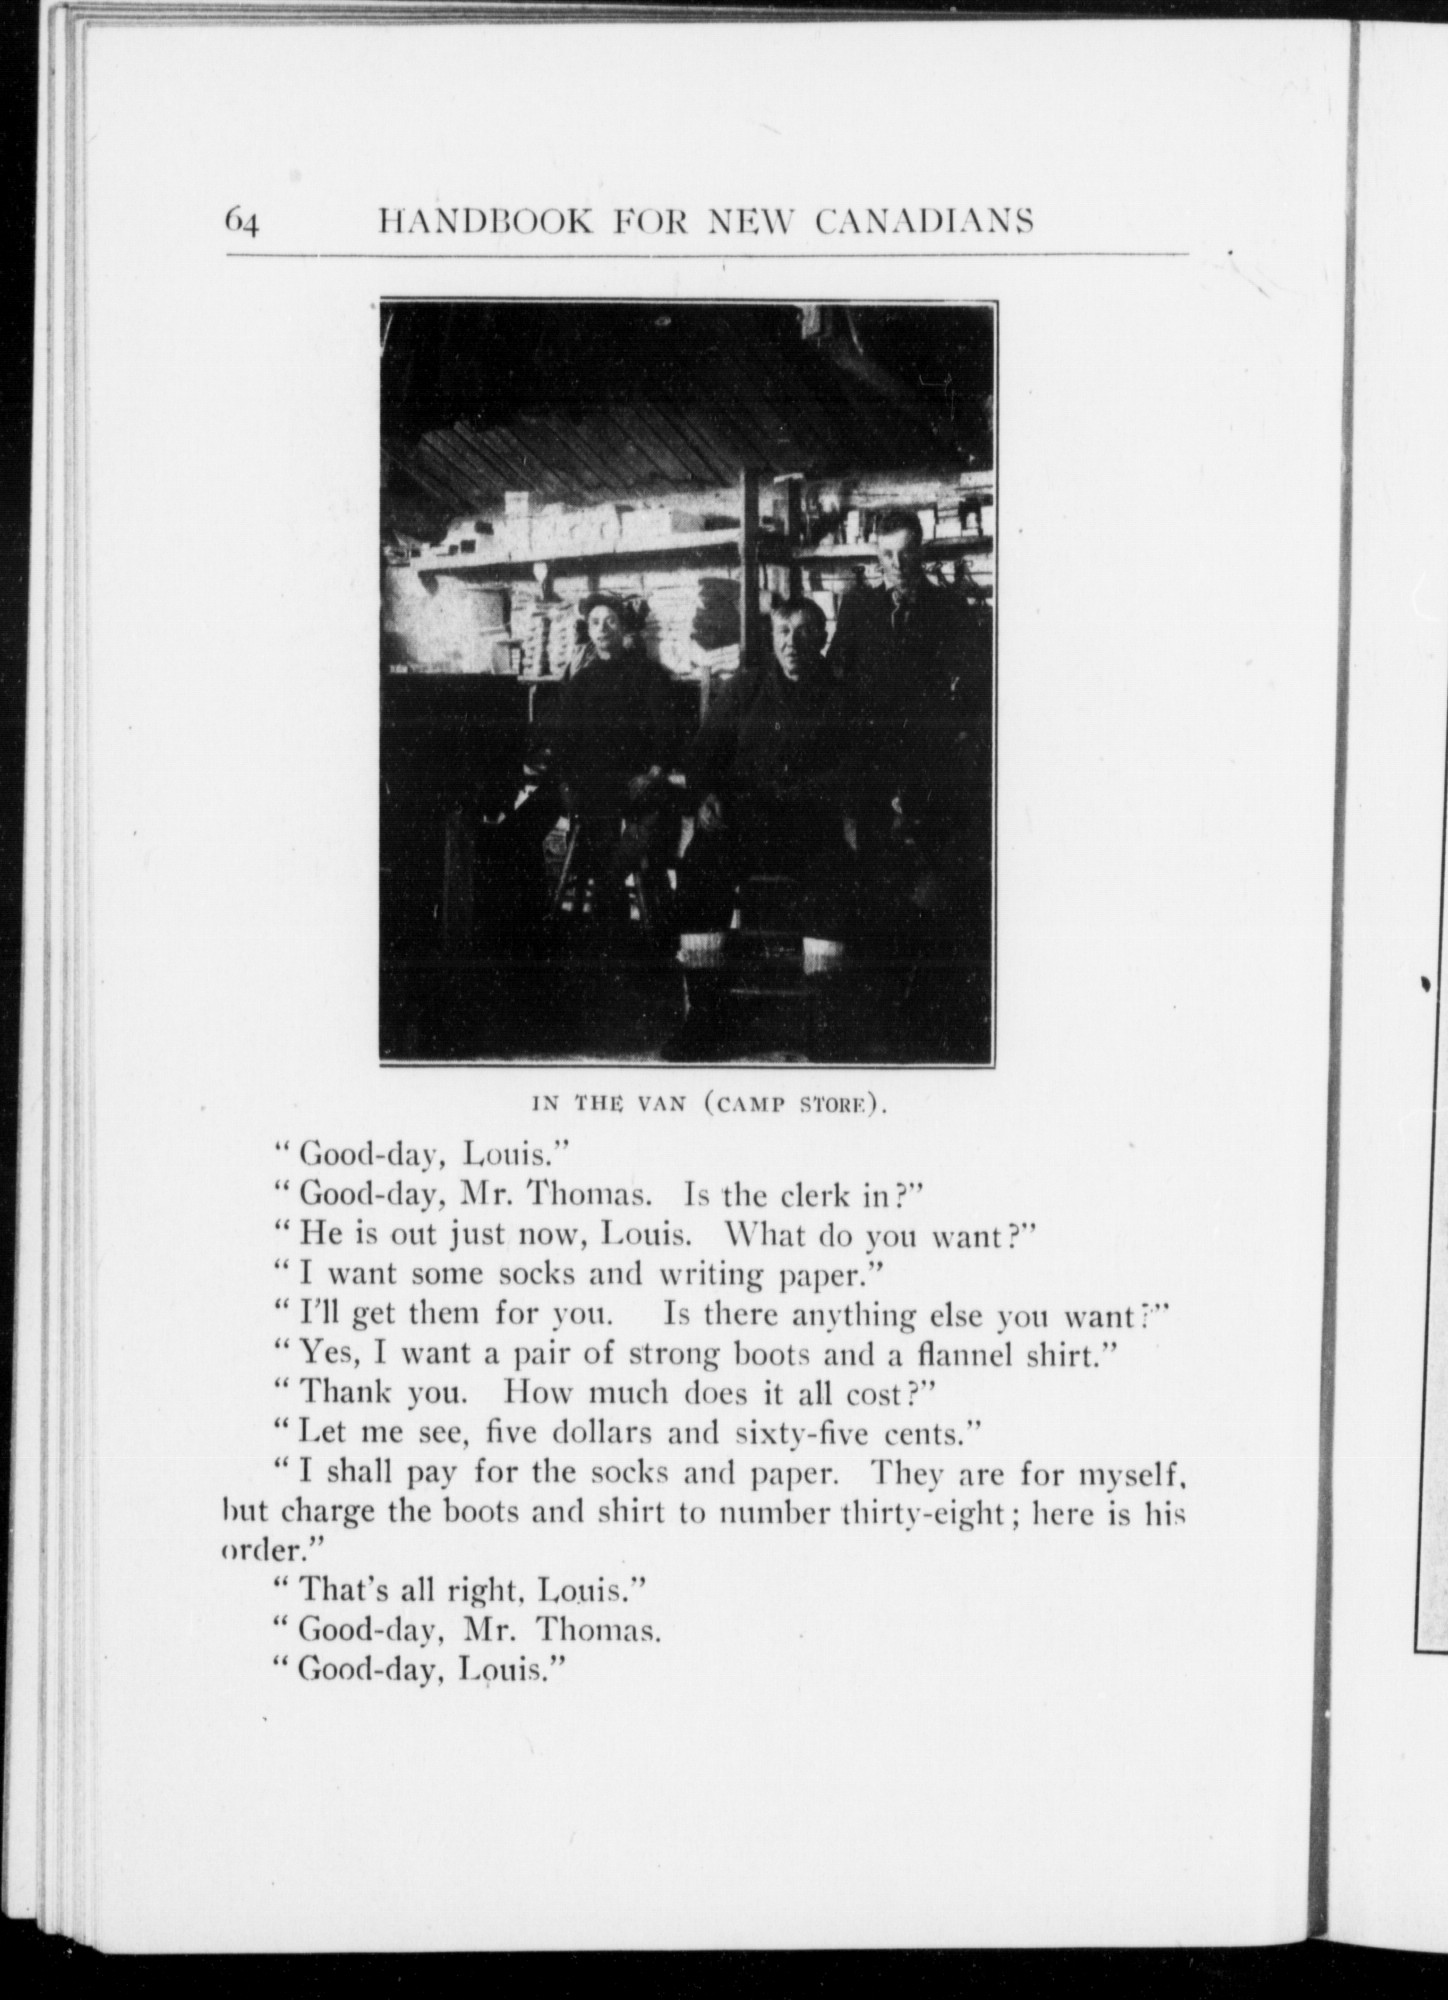 64 HANDBOOK FOR NEW CANADIANS
IN THE VAN (CAMP STORE).
“Good-day, Louis.”
“Good-day, Mr. Thomas. Is the clerk in?”
“He is out just now, Louis. What do you want?”
“I want some socks and writing paper.”
“I’ll get them for you. Is there anything else you want?”
“Yes, I want a pair of strong boots and a flannel shirt.”
“Thank you. How much does it all cost?”
“Let me see, five dollars and sixty-five cents.”
“I shall pay for the socks and paper. They are for myself,
but charge the boots and shirt to number thirty-eight; here is his
order.”
“That’s all right, Louis.”
“Good-day, Mr. Thomas.
“Good-day, Louis.”